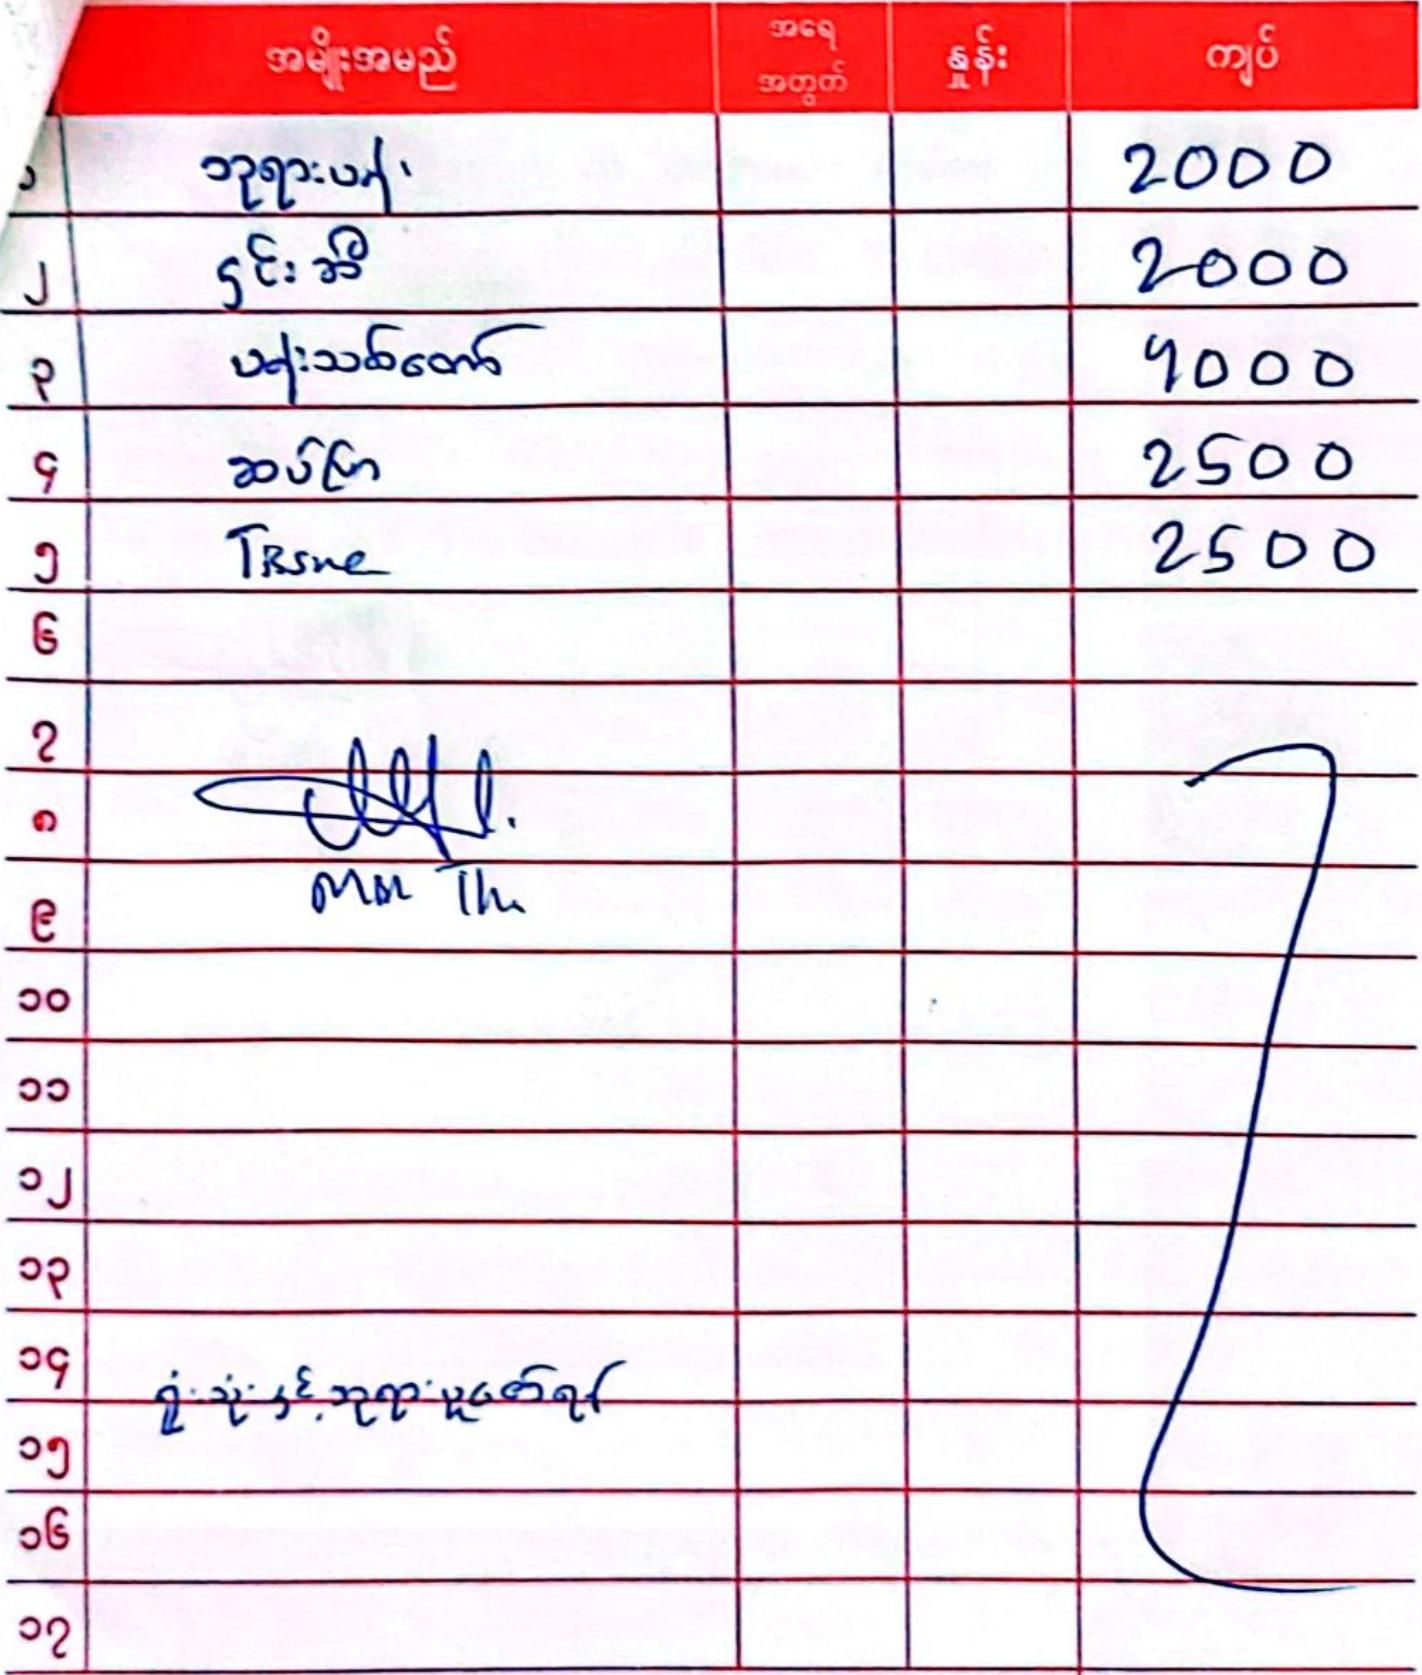 အမျိုးအမည် အရေအတွက် နှုန်း ကျပ်
ဘုရားပန်း 2000
၂ 2000
၃ ပန်းသစ်တော် 9000
၄ ဆပ်ပြာ 2500
၅ 2500
၆
၇
၈
၉
၁၀
၁၁
၁၂
၁၃
၁၄ ရုံးသုံးနှင့် ဘုရားပူဇော်ရန်
၁၅
၁၆
၁၇